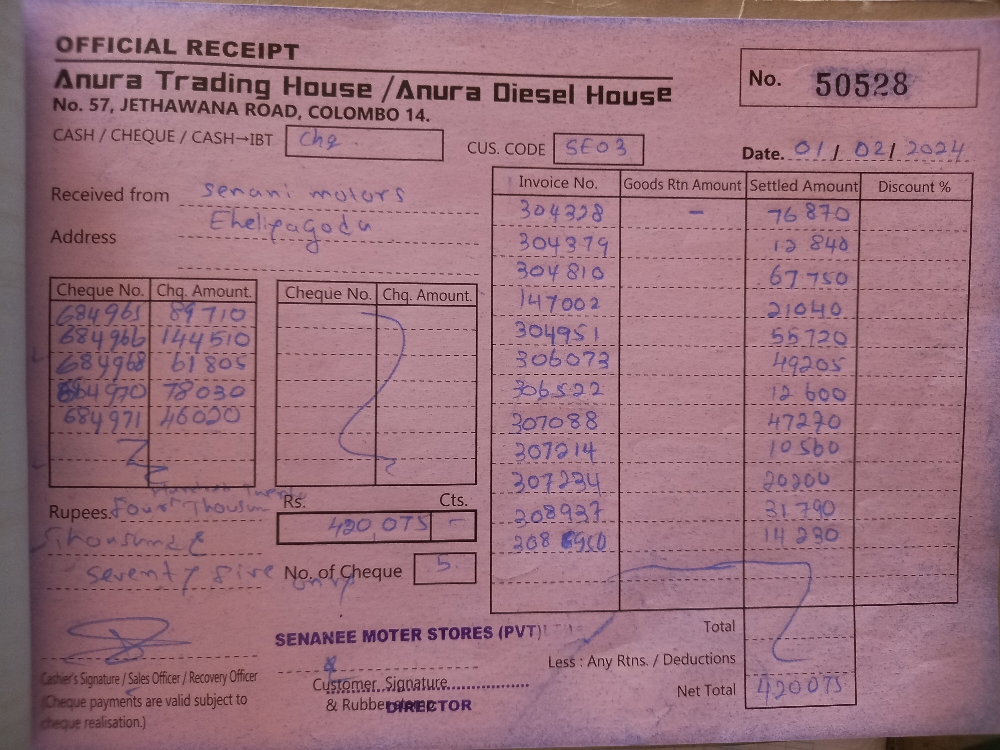 OFFICIAL RECEIPT
Anura Trading House /Anura Diesel House
No. 57, JETHAWANA ROAD, COLOMBO 14.
No. 50528
CASH / CHEQUE / CASH→IBT Chq.
CUS. CODE SE03
Date. 01 / 02 / 2024
Received from senani motors
Address Eheliyagoda
Cheque No. Chq. Amount.
684965 89710
684966 144510
684968 61805
684970 78030
684971 46020
Cheque No. Chq. Amount.
Invoice No. Goods Rtn Amount Settled Amount Discount %
304328 – 76870
304379 12 840
304810 67750
147002 21040
304951 55720
306073 49205
306522 12 600
307088 47270
307214 10560
307234 20200
308937 31790
308 14 230
Rs. Cts.
Rupees. Four
420,075 –
seventy five only
No. of Cheque 5
SENANEE MOTER STORES (PVT)
Total
Less : Any Rtns. / Deductions
Net Total 420075
Cashier's Signature / Sales Officer / Recovery Officer
(Cheque payments are valid subject to
cheque realisation.)
Customer Signature
& Rubber
DIRECTOR